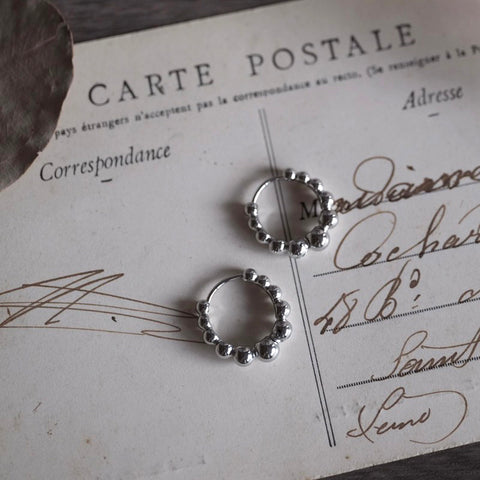 CARTE POSTALE
pays étrangers n'acceptent pas la correspondance au recto. (Se renseigner à la P
Correspondance
Adresse
M
48 Bd